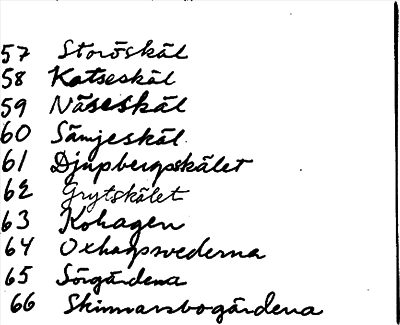 57 Storöskäl
58 Katseskäl
59 Näseskäl
60 Sämjeskäl
61 Djupbergsskälet
62 Grytskälet
63 Kohagen
64 Oxhagssvederna
65 Sörgårdena
66 Skinnarsbogårdena